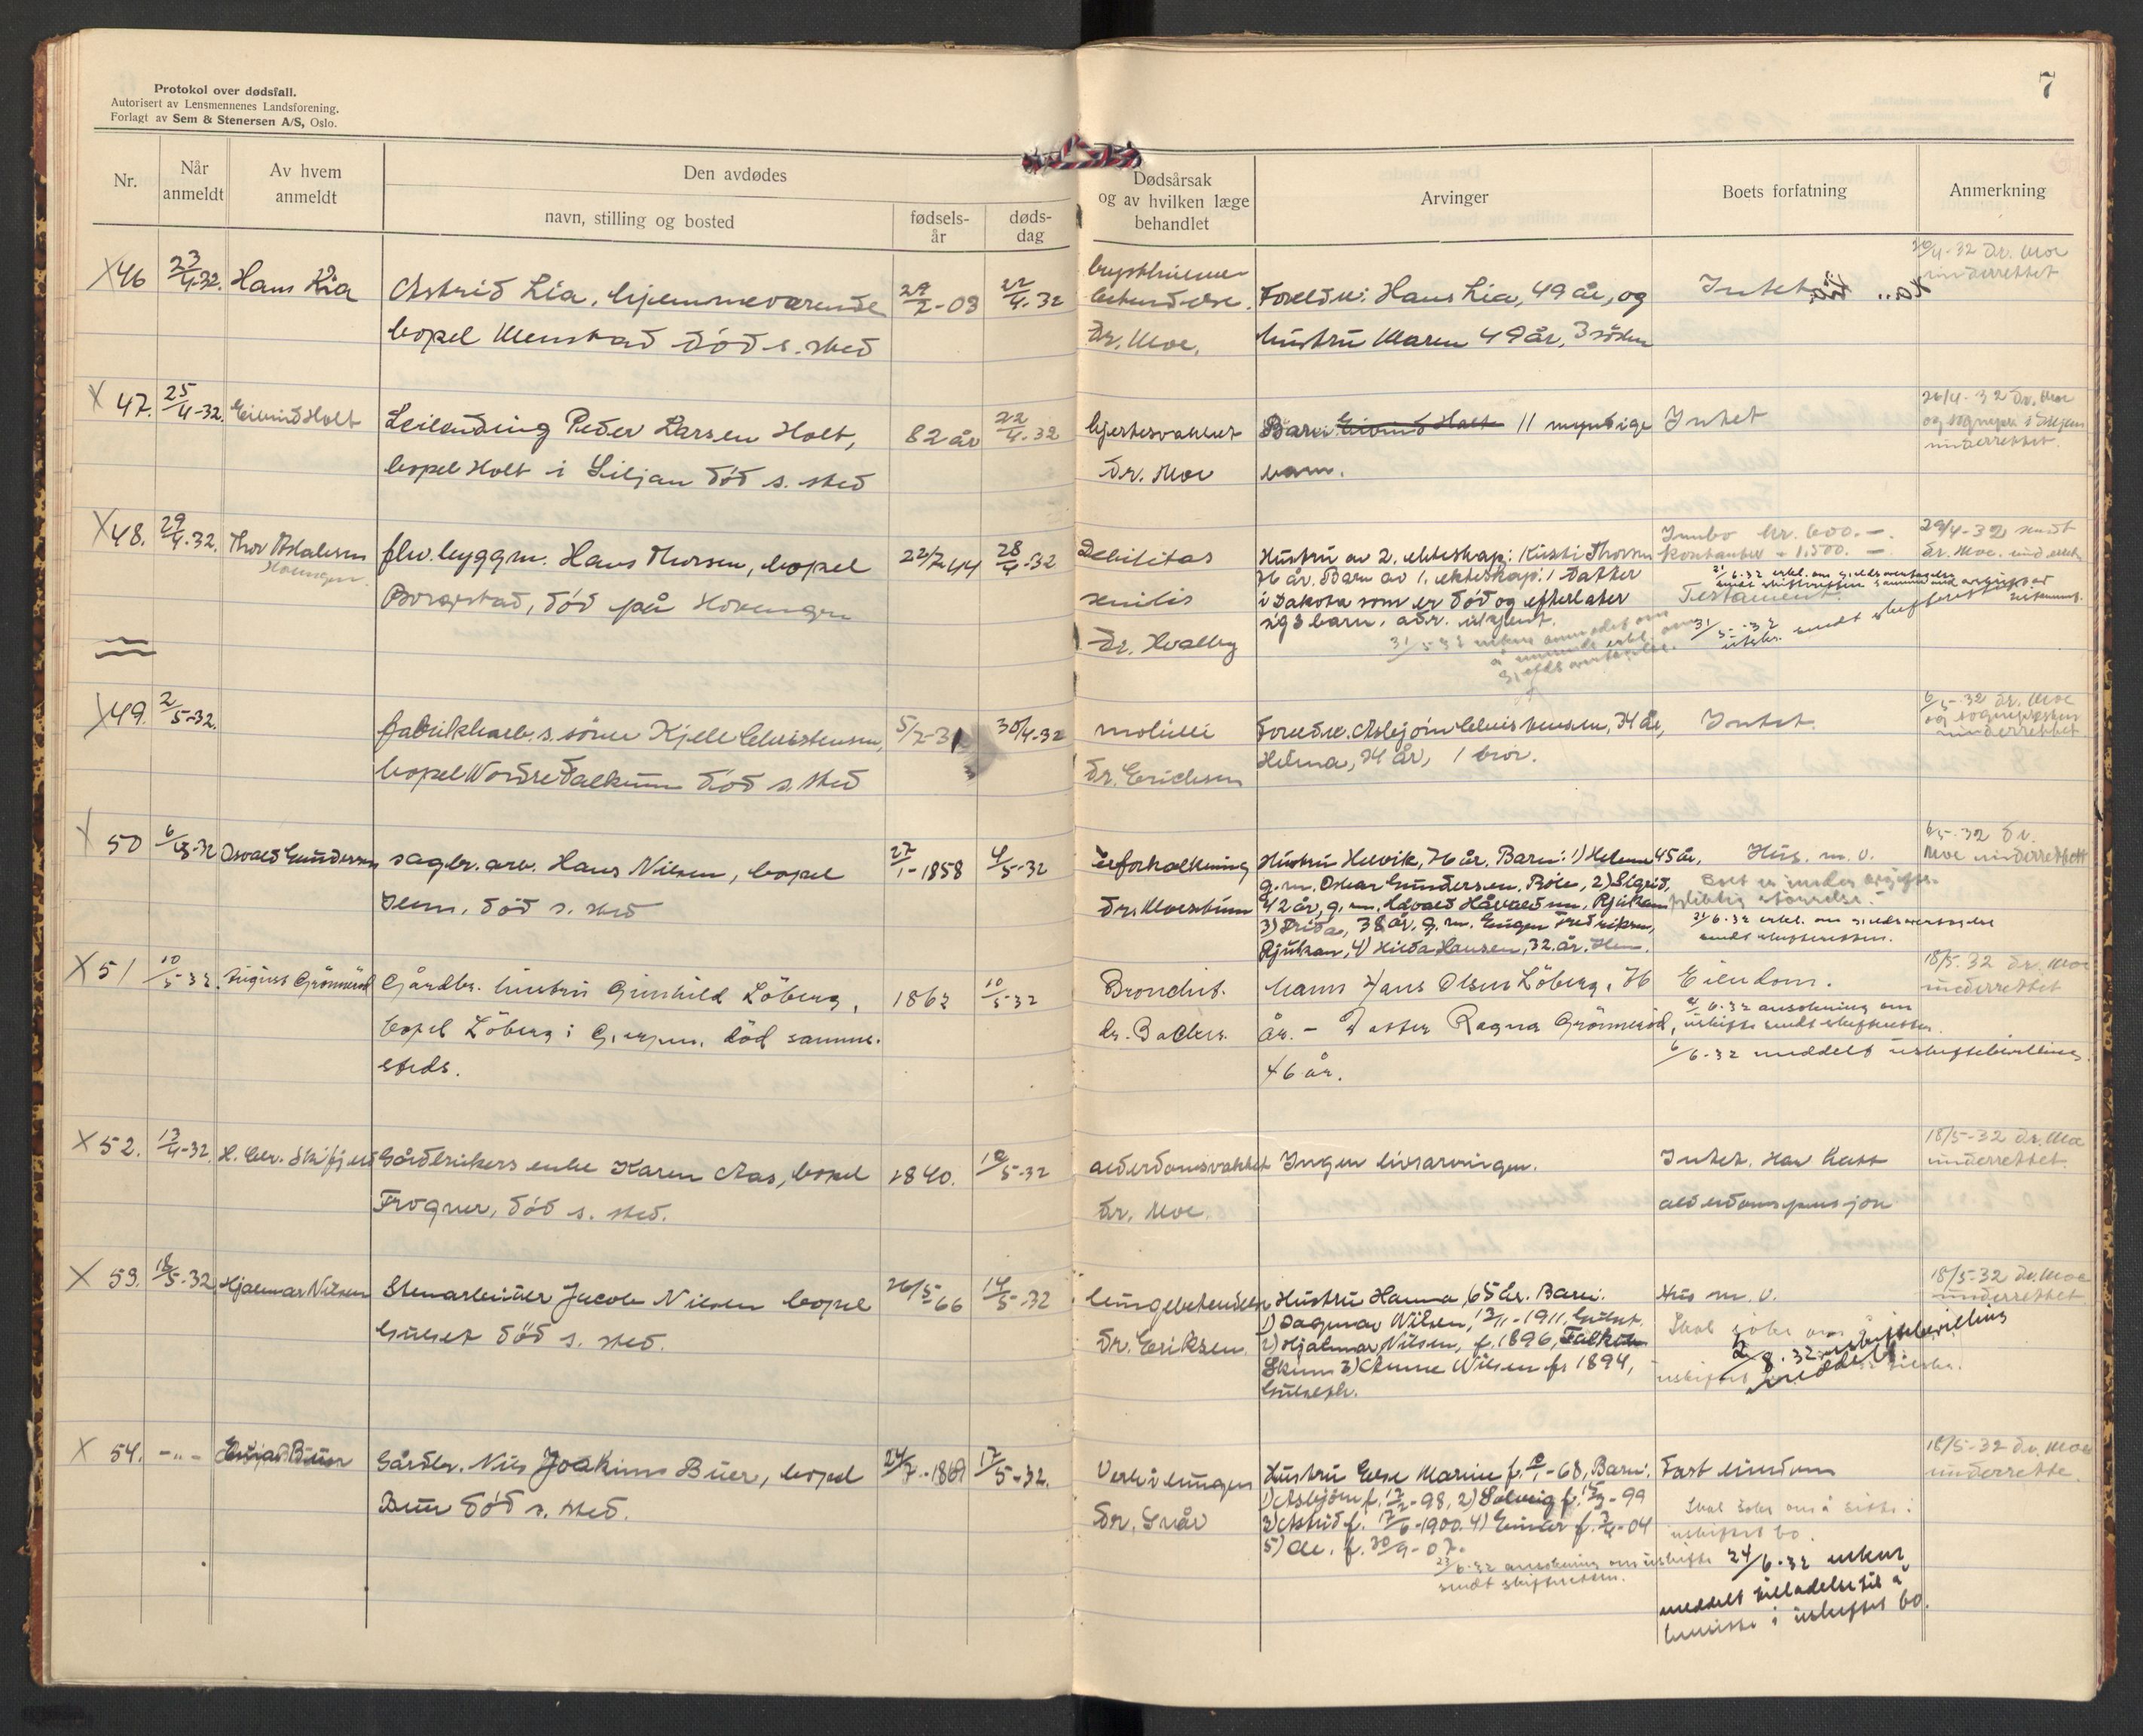 Protokol over dødsfall.
Autorisert av Lensmennenes Landsforening.
Forlagt av Sem & Stenersen A/S, Oslo.
7
Nr.
Når anmeldt
Av hvem anmeldt
Den avdødes
navn, stilling og bosted
fødsels-år
døds-dag
Dødsårsak og av hvilken læge behandlet
Arvinger
Boets forfatning
Anmerkning
X 46 23/4-32. Hans Lia
Astrid Lia, hjemmeværende
bopel Menstad död s. sted
22/4-32
Dr. Moe.
Foreldre: Hans Lia, 49 år, og
hustru Maren 49 år, 3 södsken
Intet
20/4-32 Dr. Moe
underrettet
X 47. 25/4-32. Eivind Holt
Leilending Peder Larsen Holt,
bopel Holt i Siljan död s. sted
82 år
22/4-32
hjertesvakhet
Dr. Moe
Barn: Eivind Holt 11 myndige
barn.
Intet
26/4-32 Dr. Moe
og sognepr. i Siljan
underrettet.
X 48. 29/4-32. Thor
fhv. byggm. Hans Thorsen, bopel
Borgestad, död på Hovenga
22/7 44
28/4-32
Debilitas
senilis
Dr. Hvalby
Hustru av 2. ekteskap: Kirsti Thorsen
76 år. Barn av 1. ekteskap: 1 datter
i Dakota som er död og efterlater
sig 3 barn, adr. ukjent.
Innbo kr. 600.-
Kontanter - 1.500.-
Testament.
29/4-32 sendt
Dr. Moe. underrett
X 49. 2/5-32.
fabrikkarb. s. sönn Kjell Christensen,
bopel Nordre Falkum död s. sted
30/4-32
Dr. Erichsen
Foreldre. Asbjörn Christensen, 34 år,
Helma, 34 år, 1 bror.
Intet.
6/5-32 Dr. Moe
og sognepresten
underrettet
X 50 6/5-32 Osvald Gundersen
sagbr. arb. Hans Nilsen, bopel
Skien. död s. sted
27/1-1858
4/5-32
åreforkalkning
Hustru Helvik, 76 år. Barn: 1) Helene 45 år,
g.m. Oskar Gundersen. Böle, 2) Sigrid,
42 år, g.m. Edvald Håvaldsen, Rjukan
3) Frida, 38 år, g.m. Eugen Fredriksen,
Rjukan, 4) Hilda Hansen, 32 år.
Hus. m. v.
21/6-32 erkl. om gjeldsovertagelse
sendt skifteretten.
6/5-32 Dr.
Moe underrettet
X 51 10/5-32. August Grönneröd
Gårdbr. hustru Gunhild Löberg,
bopel Löberg i Gjerpen. död samme-
steds.
1862
10/5-32
Bronchit.
dr. Backer.
Mann Hans Olsen Löberg, 76
år. - Datter Ragna Grönneröd,
46 år.
Eiendom.
2/6-32 ansökning om
uskifte sendt skifteretten.
6/6-32 meddelt uskiftebevilling.
18/5-32 Dr. Moe
underrettet
X 52. 13/4-32.
Gårdbrukers enke Karen Aas, bopel
Frogner, död s. sted.
1840.
alderdomsvakhet
Dr. Moe
Ingen livsarvinger.
Intet. Har hatt
alderdomspensjon
18/5-32 Dr. Moe
underrettet.
X 53. 18/5-32. Hjalmar Nilsen
Stenarbeider Jacob Nilsen bopel
Gulset död s. sted.
26/5-66
14/5-32
lungebetendelse
Dr. Eriksen.
Hustru Hanna, 65 år. Barn:
1) Dagmar Nilsen, 13/11-1911, Gulset.
2) Hjalmar Nilsen, f. 1896, Falkum
Skien 3) Anne Nilsen f. 1894,
Gulset.
Hus m. v.
2/8-32 uskiftebevilling
meddelt.
18/5-32 Dr. Moe
underrettet
X 54. -"-
Gårdbr. Nils Joakim Buer, bopel
Buer död s. sted.
17/5-32.
Verk i lungen
Hustru Else Marine f. -68, Barn:
1) Asbjörn f. -98, 2) Solveig f. -99
3) Astrid f. 17/6-1900. 4) Einar f. -04
5) Ole. f. 20/9-07.
23/6-32 ansökning om uskifte
sendt skifteretten.
Fast eiendom
Skal söke om å sitte i
uskiftet bo.
24/6-32 enken
meddelt tilladelse til å
hensitte i uskiftet bo.
18/5-32 Dr. Moe
underrette.